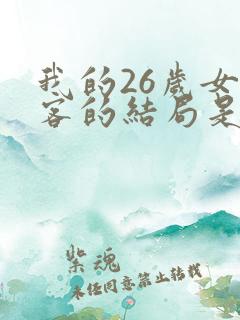 我的26歲女
客的結局是
紫魂
未任同意禁止轉載